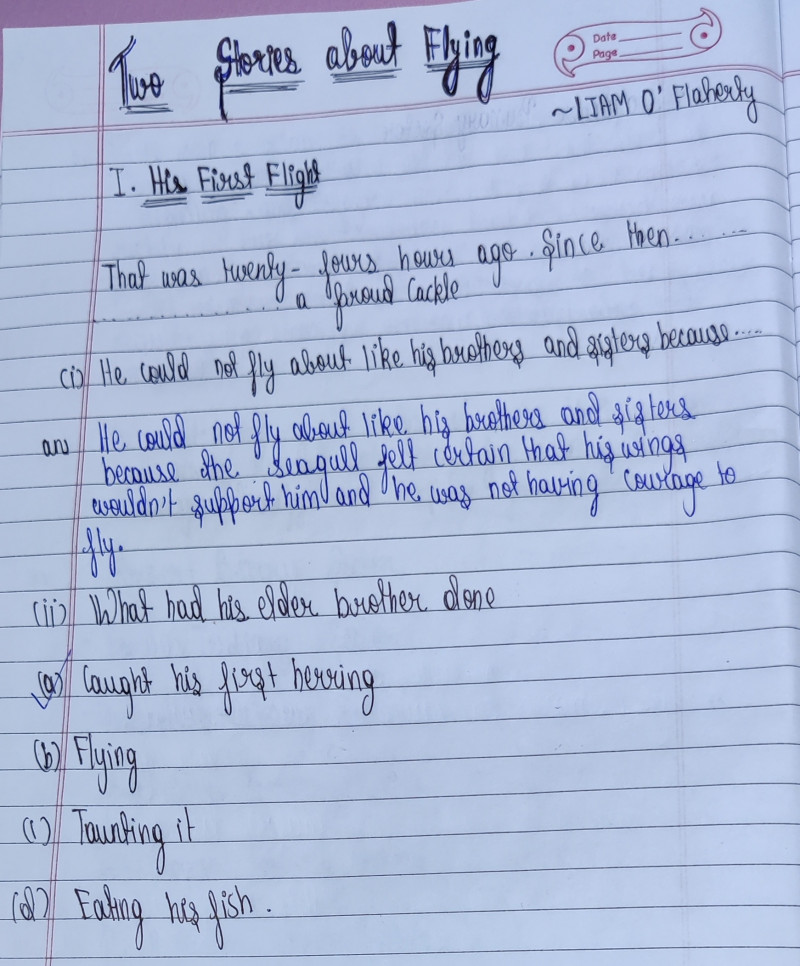 Two Stories about Flying
Date
Page
~LIAM O' Flaherty
I. His First Flight
That was twenty-fours hours ago. Since then.......
.................. a proud Cackle
(i) He could not fly about like his brothers and sisters because....
an) He could not fly about like his brothers and sisters
because the seagull felt certain that his wings
wouldn't support him and he was not having courage to
fly.
(ii) What had his elder brother done
(a) Caught his first herring
(b) Flying
(c) Taunting it
(d) Eating his fish.